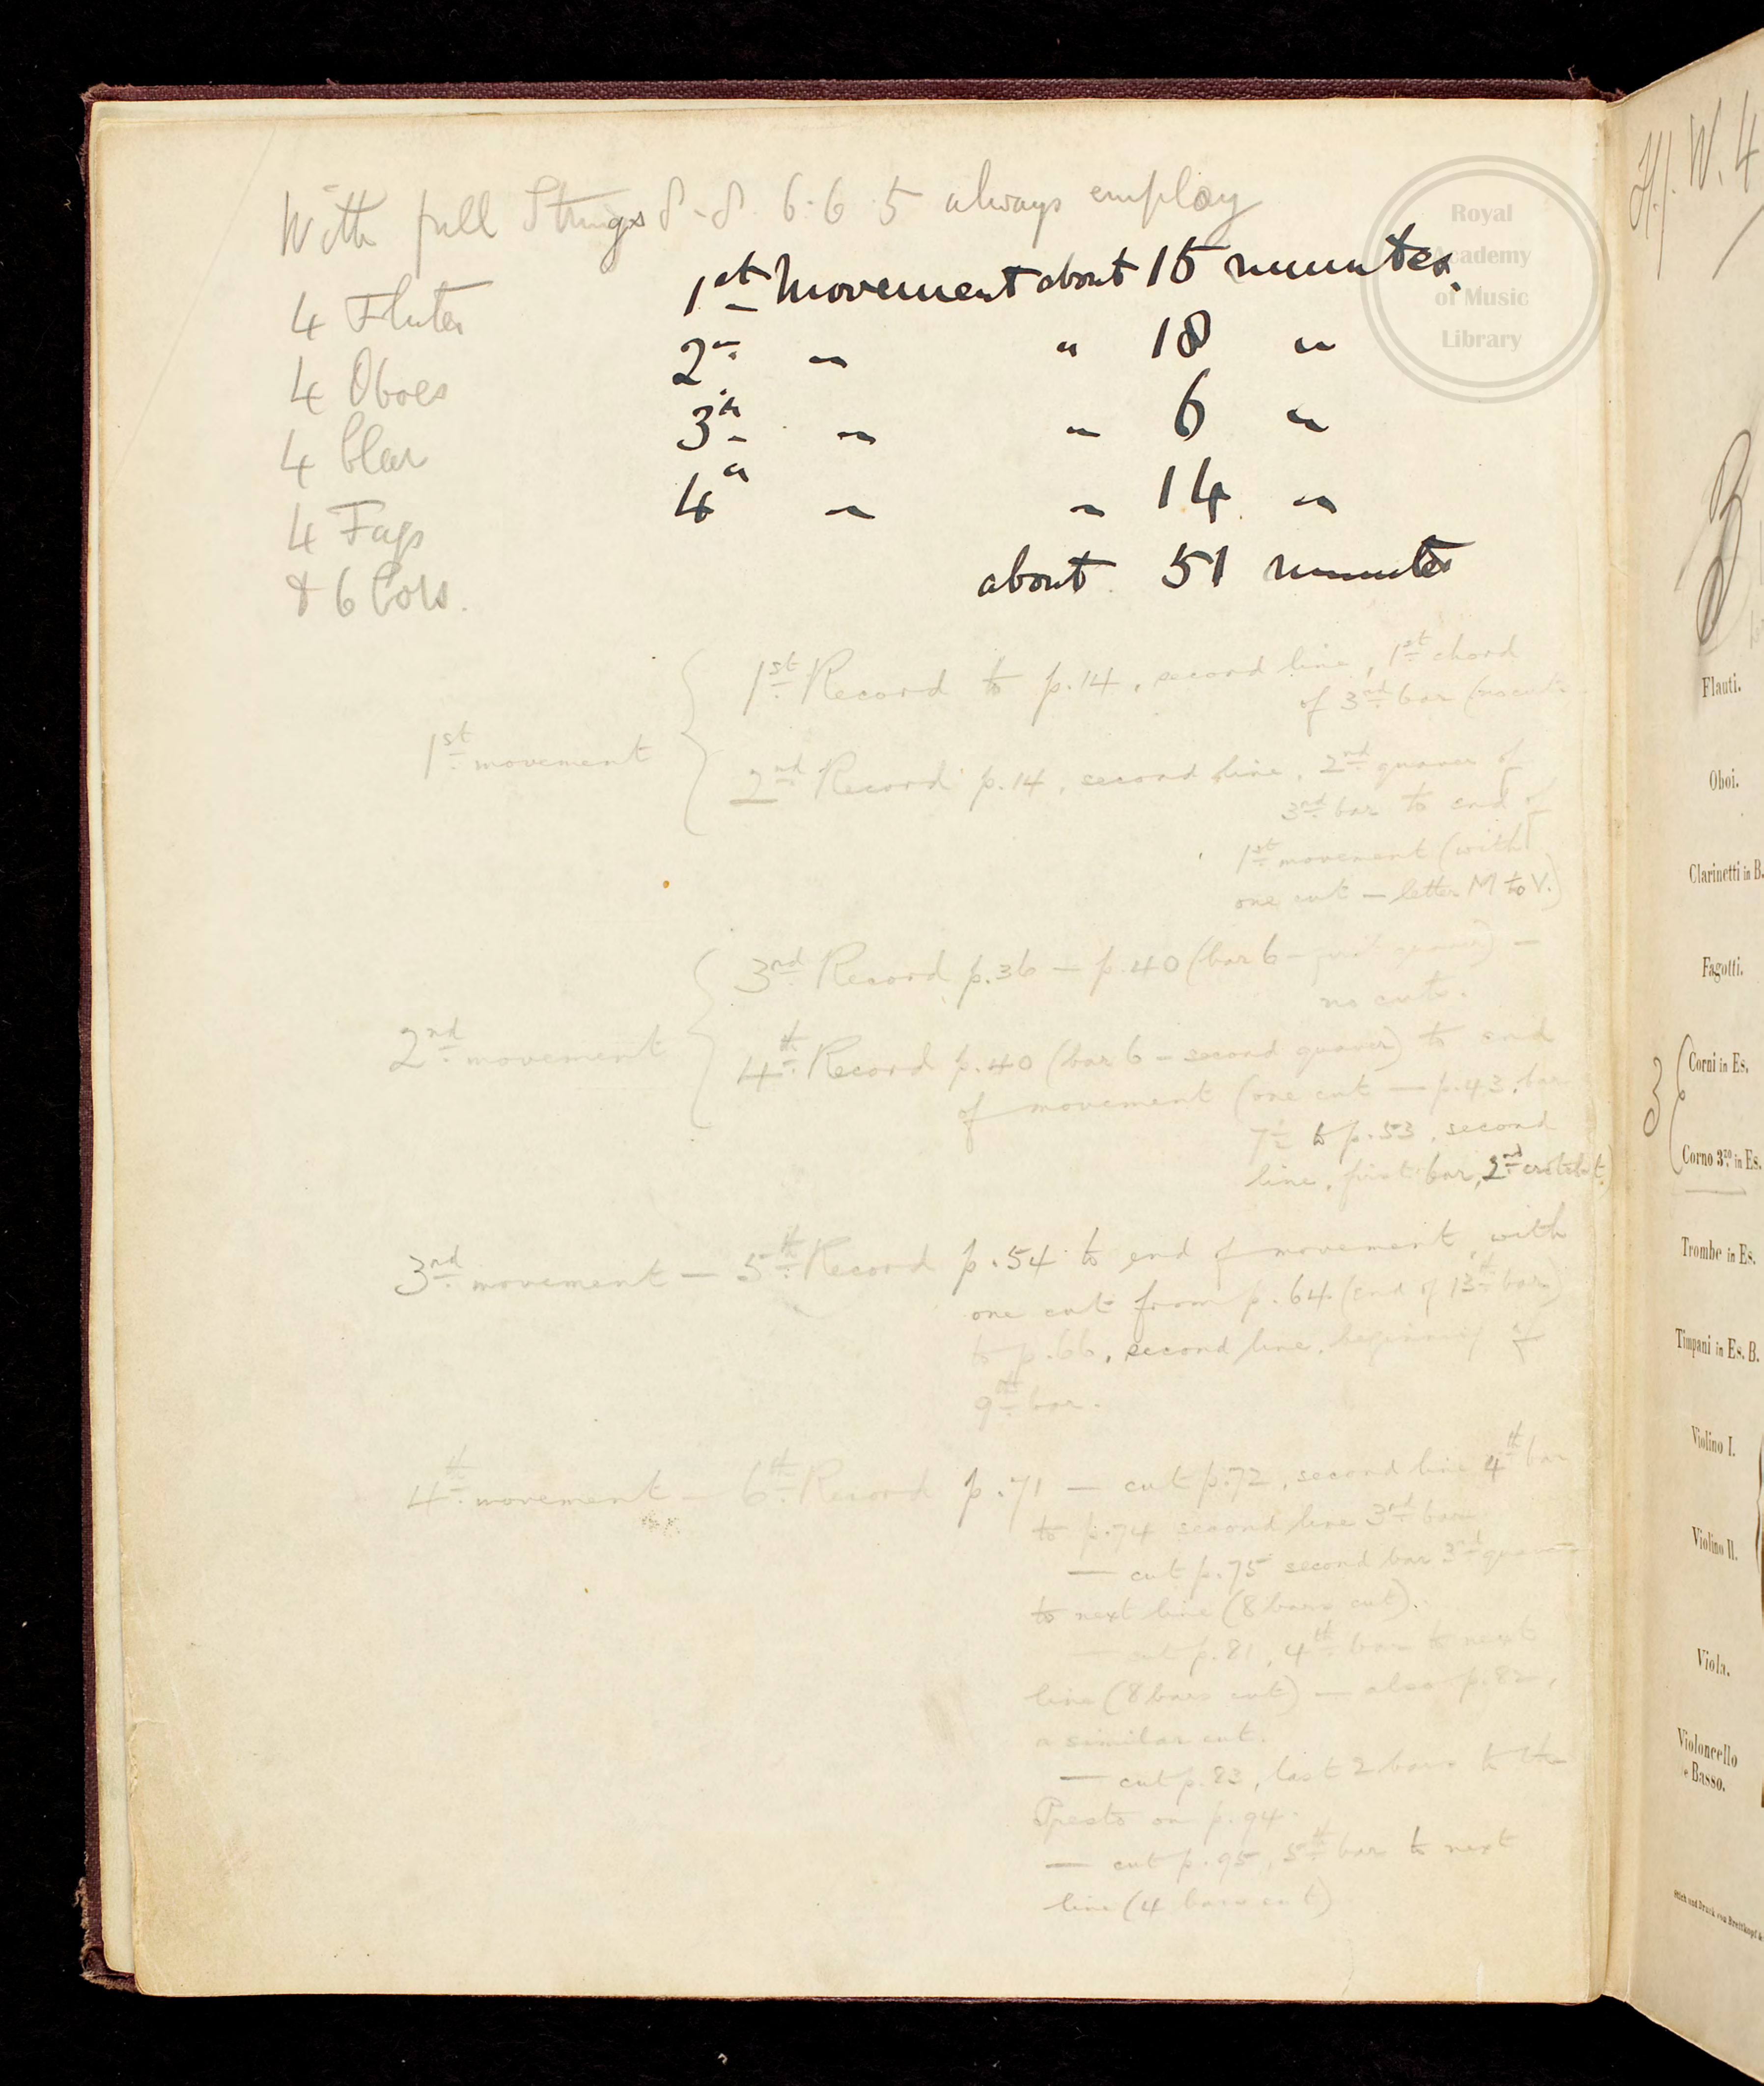 With full Strings 8-8 6-6 5 always employ
4 Flutes
4 Oboes
4 Clar
4 Fags
& 6 Cors.
1st Movement about 15 minutes.
2 " " " 18 "
3 " " " 6 "
4 " " " 14 "
about 51 minutes
1st movement
1st Record to p.14, second line, 1st chord
of 3rd bar (no cuts
2nd Record p.14, second line, 2nd quaver of
3rd bar to end of
1st movement (with
one cut — letter M to V.)
2nd movement
3rd Record p.36 — p.40 (bar 6 - first quaver) —
no cuts.
4th Record p.40 (bar 6 - second quaver) to end
of movement (one cut — p.43, bar
7 to p.53, second
line, first bar, 2nd crotchet)
3rd movement — 5th Record p.54 to end of movement, with
one cut from p.64 (end of 13th bar)
to p.66, second line, beginning of
9th bar.
4th movement — 6th Record p.71 — cut p.72, second line 4th bar
to p.74 second line 3rd bar
— cut p.75 second bar 3rd quaver
to next line (8 bars cut).
— cut p.81, 4th bar to next
line (8 bars cut) — also p.82,
a similar cut.
— cut p.83, last 2 bars to the
Presto on p.94.
— cut p.95, 5th bar to next
line (4 bars cut)
Royal
Academy
of Music
Library
H. W. 4
Flauti.
Oboi.
Clarinetti in B.
Fagotti.
3
Corni in Es.
Corno 3zo in Es.
Trombe in Es.
Timpani in Es. B.
Violino I.
Violino II.
Viola.
Violoncello
e Basso.
Stich und Druck von Breitkopf &